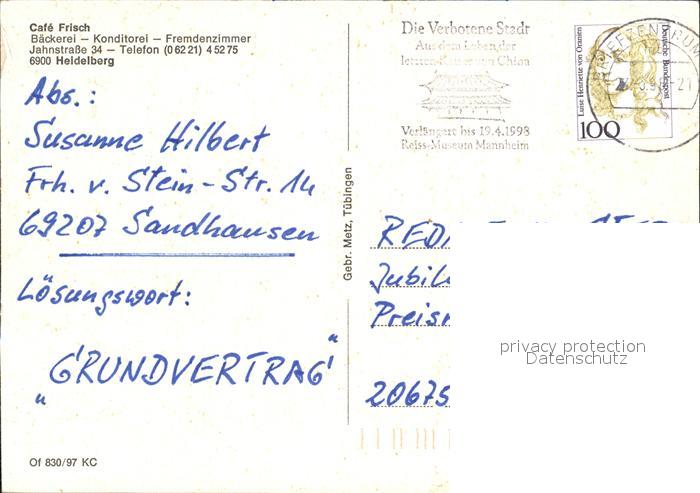 Café Frisch
Bäckerei – Konditorei – Fremdenzimmer
Jahnstraße 34 – Telefon (0 62 21) 4 52 75
6900 Heidelberg
Abs.:
Susanne Hilbert
Frh. v. Stein-Str. 14
69207 Sandhausen
Lösungswort:
„GRUNDVERTRAG"
Of 830/97 KC
Gebr. Metz, Tübingen
Die Verbotene Stadt
Aus dem Leben der
letzten Kaiser von China
Verlängert bis 19.4.1998
Reiss-Museum Mannheim
Luise Henriette von Oranien
Deutsche Bundespost
100
BRIEFZENTRUM
Jubil
20675
privacy protection
Datenschutz